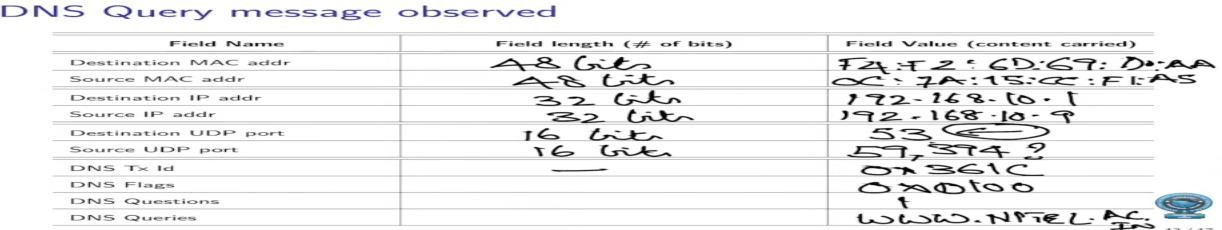 DNS Query message observed
Field Name Field length (# of bits) Field Value (content carried)
Destination MAC addr 48 bits F4:F2:6D:69:D0:AA
Source MAC addr 48 bits CC:7A:15:CC:F1:A5
Destination IP addr 32 bits 192.168.10.1
Source IP addr 32 bits 192.168.10.9
Destination UDP port 16 bits 53
Source UDP port 16 bits 59,394 ?
DNS Tx Id — 0x361C
DNS Flags 0x0100
DNS Questions 1
DNS Queries WWW.NPTEL.AC.
IN